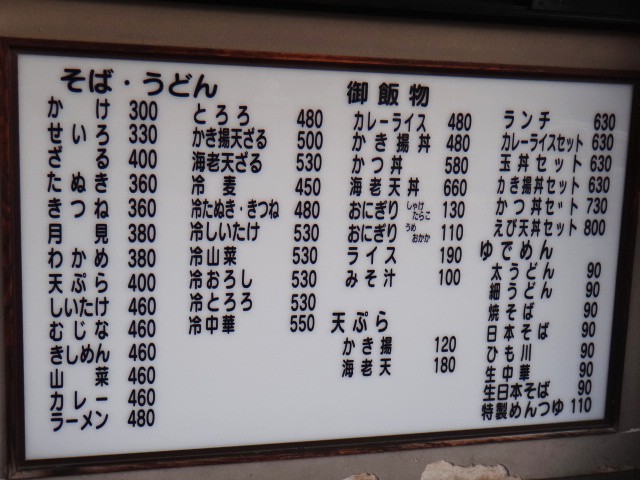 そば・うどん
かけ 300
せいろ 330
ざる 400
たぬき 360
きつね 360
月見 380
わかめ 380
天ぷら 400
しいたけ 460
むじな 460
きしめん 460
山菜 460
カレー 460
ラーメン 480
とろろ 480
かき揚天ざる 500
海老天ざる 530
冷麦 450
冷たぬき・きつね 480
冷しいたけ 530
冷山菜 530
冷おろし 530
冷とろろ 530
冷中華 550
御飯物
カレーライス 480
かき揚丼 480
かつ丼 580
海老天丼 660
おにぎり しゃけ たらこ 130
おにぎり うめ おかか 110
ライス 190
みそ汁 100
天ぷら
かき揚 120
海老天 180
ランチ 630
カレーライスセット 630
玉丼セット 630
かき揚丼セット 630
かつ丼セット 730
えび天丼セット 800
ゆでめん
太うどん 90
細うどん 90
焼そば 90
日本そば 90
ひも川 90
生中華 90
生日本そば 90
特製めんつゆ 110